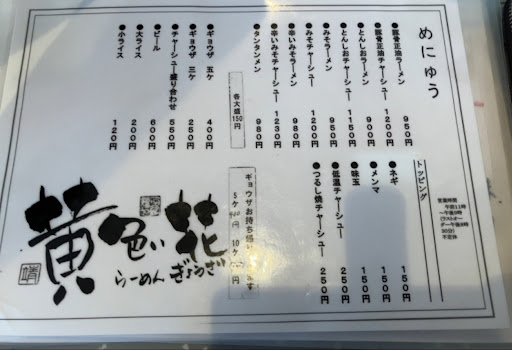 めにゅう
●豚骨正油ラーメン 950円
●豚骨正油チャーシュー 1200円
●とんしおラーメン 900円
●とんしおチャーシュー 1150円
●みそラーメン 950円
●みそチャーシュー 1200円
●辛いみそラーメン 980円
●辛いみそチャーシュー 1230円
●タンタンメン 980円
各大盛150円
●ギョウザ 五ケ 400円
●ギョウザ 三ケ 250円
●チャーシュー盛り合わせ 550円
●ビール 600円
●大ライス 200円
●小ライス 120円
トッピング
●ネギ 150円
●メンマ 150円
●味玉 150円
●低温チャーシュー 250円
●つるし焼チャーシュー 250円
営業時間
午前11時
～午後9時
(ラストオー
ダー午後8時
30分)
不定休
ギョウザお持ち帰り
5ケ
10ケ
黄色い花
らーめん ぎょうざ